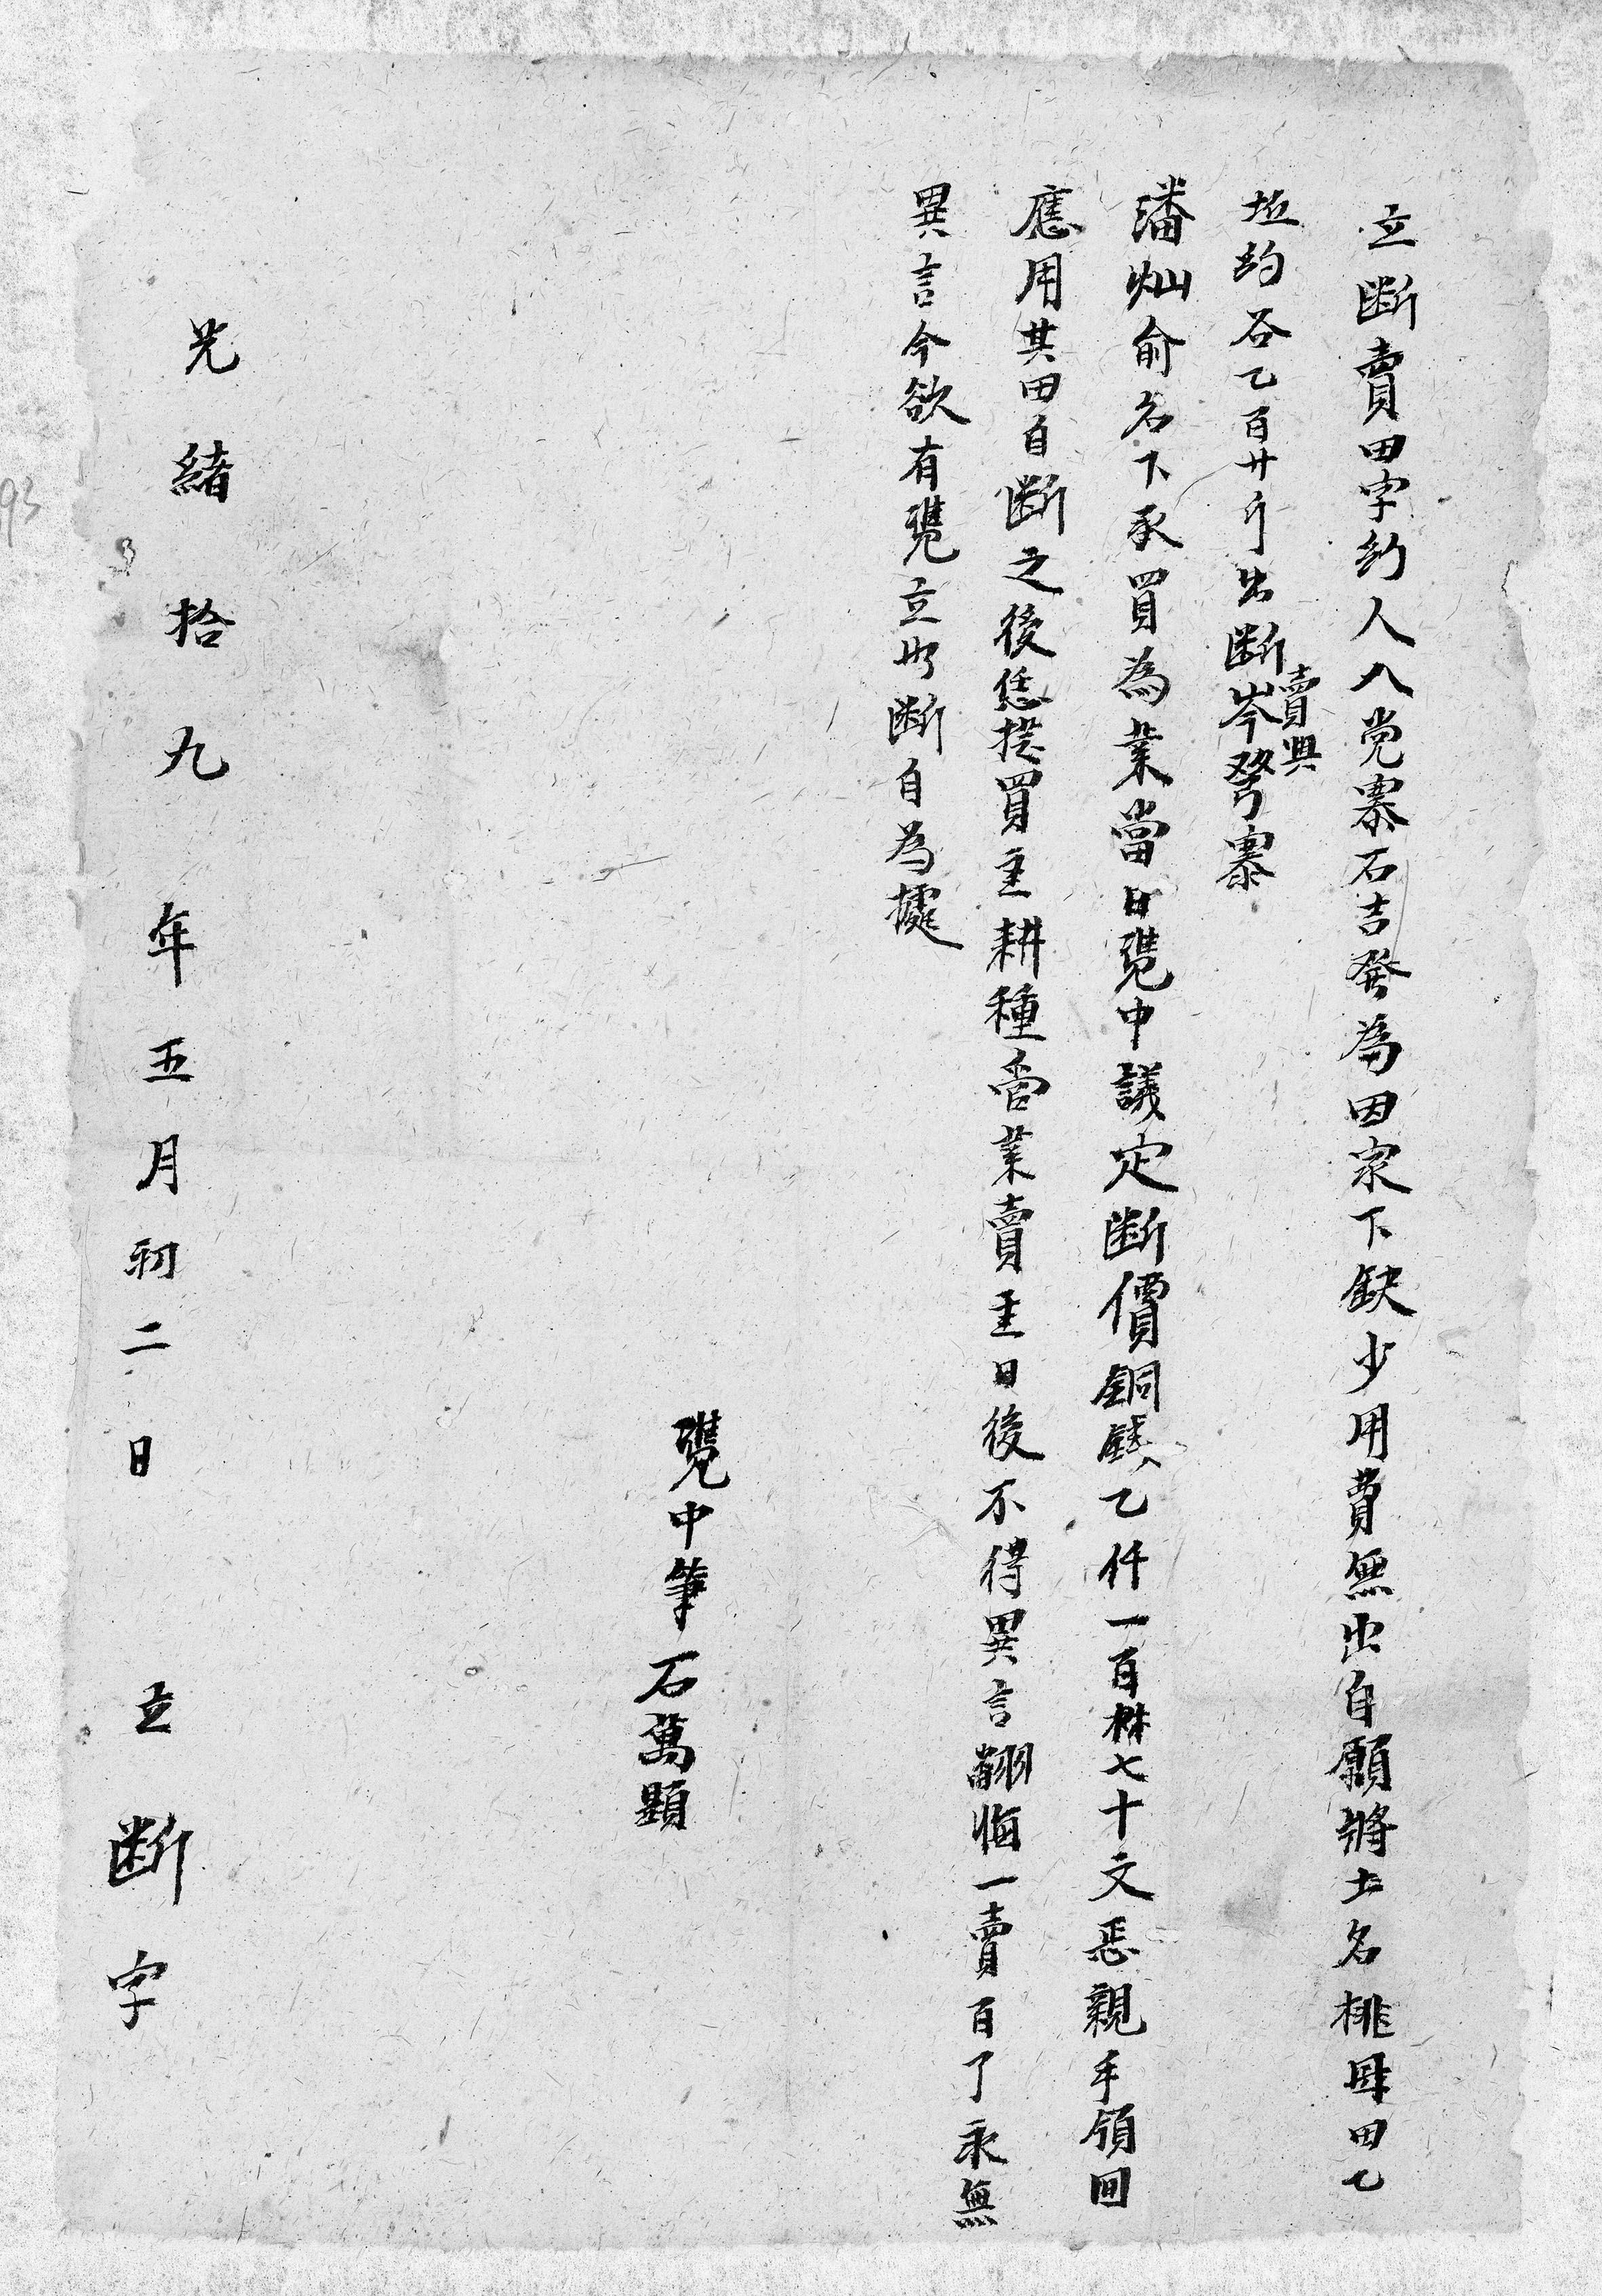 立斷賣田字約人八党寨石吉發為因家下缺少用費無出自願將土名桃母田乙
坵約谷乙百廿斤出斷賣與岑孥寨
潘灿俞名下承買為業當日凴中議定斷價銅錢乙仟一百七十文親手領回
應用其田自斷之後恁從買主耕種管業賣主日後不得異言翻悔一賣百了永無
異言今欲有凴立此斷自為據
凴中筆石萬顯
光緒拾九年五月初二日立斷字
93